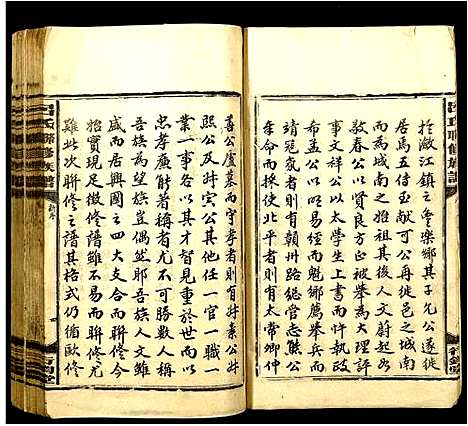 於瀲江鎮之雲樂鄉其子允公遂徙
居焉五傳至獻可公再徙邑之城南
而為城南之始祖其後人文蔚起有
敬春公以賢良方正被舉為大理評
事文祥公以太學生上書而忤執政
希盖公以明經而魁鄉薦舉兵而
靖冠氛者則有贛州路總管志熊公
奉命而採使北平者則有太常卿仲
善公廬墓而守孝者則有升素公升
熙公及升宏公其他任一官一職一
業一事各以其才智見重於世而以
忠孝廉節耐著稱者尤不可勝數人稱
吾族為望族豈偶然耶吾族人文雖
盛而居興國之四大支合而聯修今
始實現足徵修譜雖不易而聯修尤
難此次聯修之譜其格式仍循歐修
氏聯修族譜
氏聯修族譜